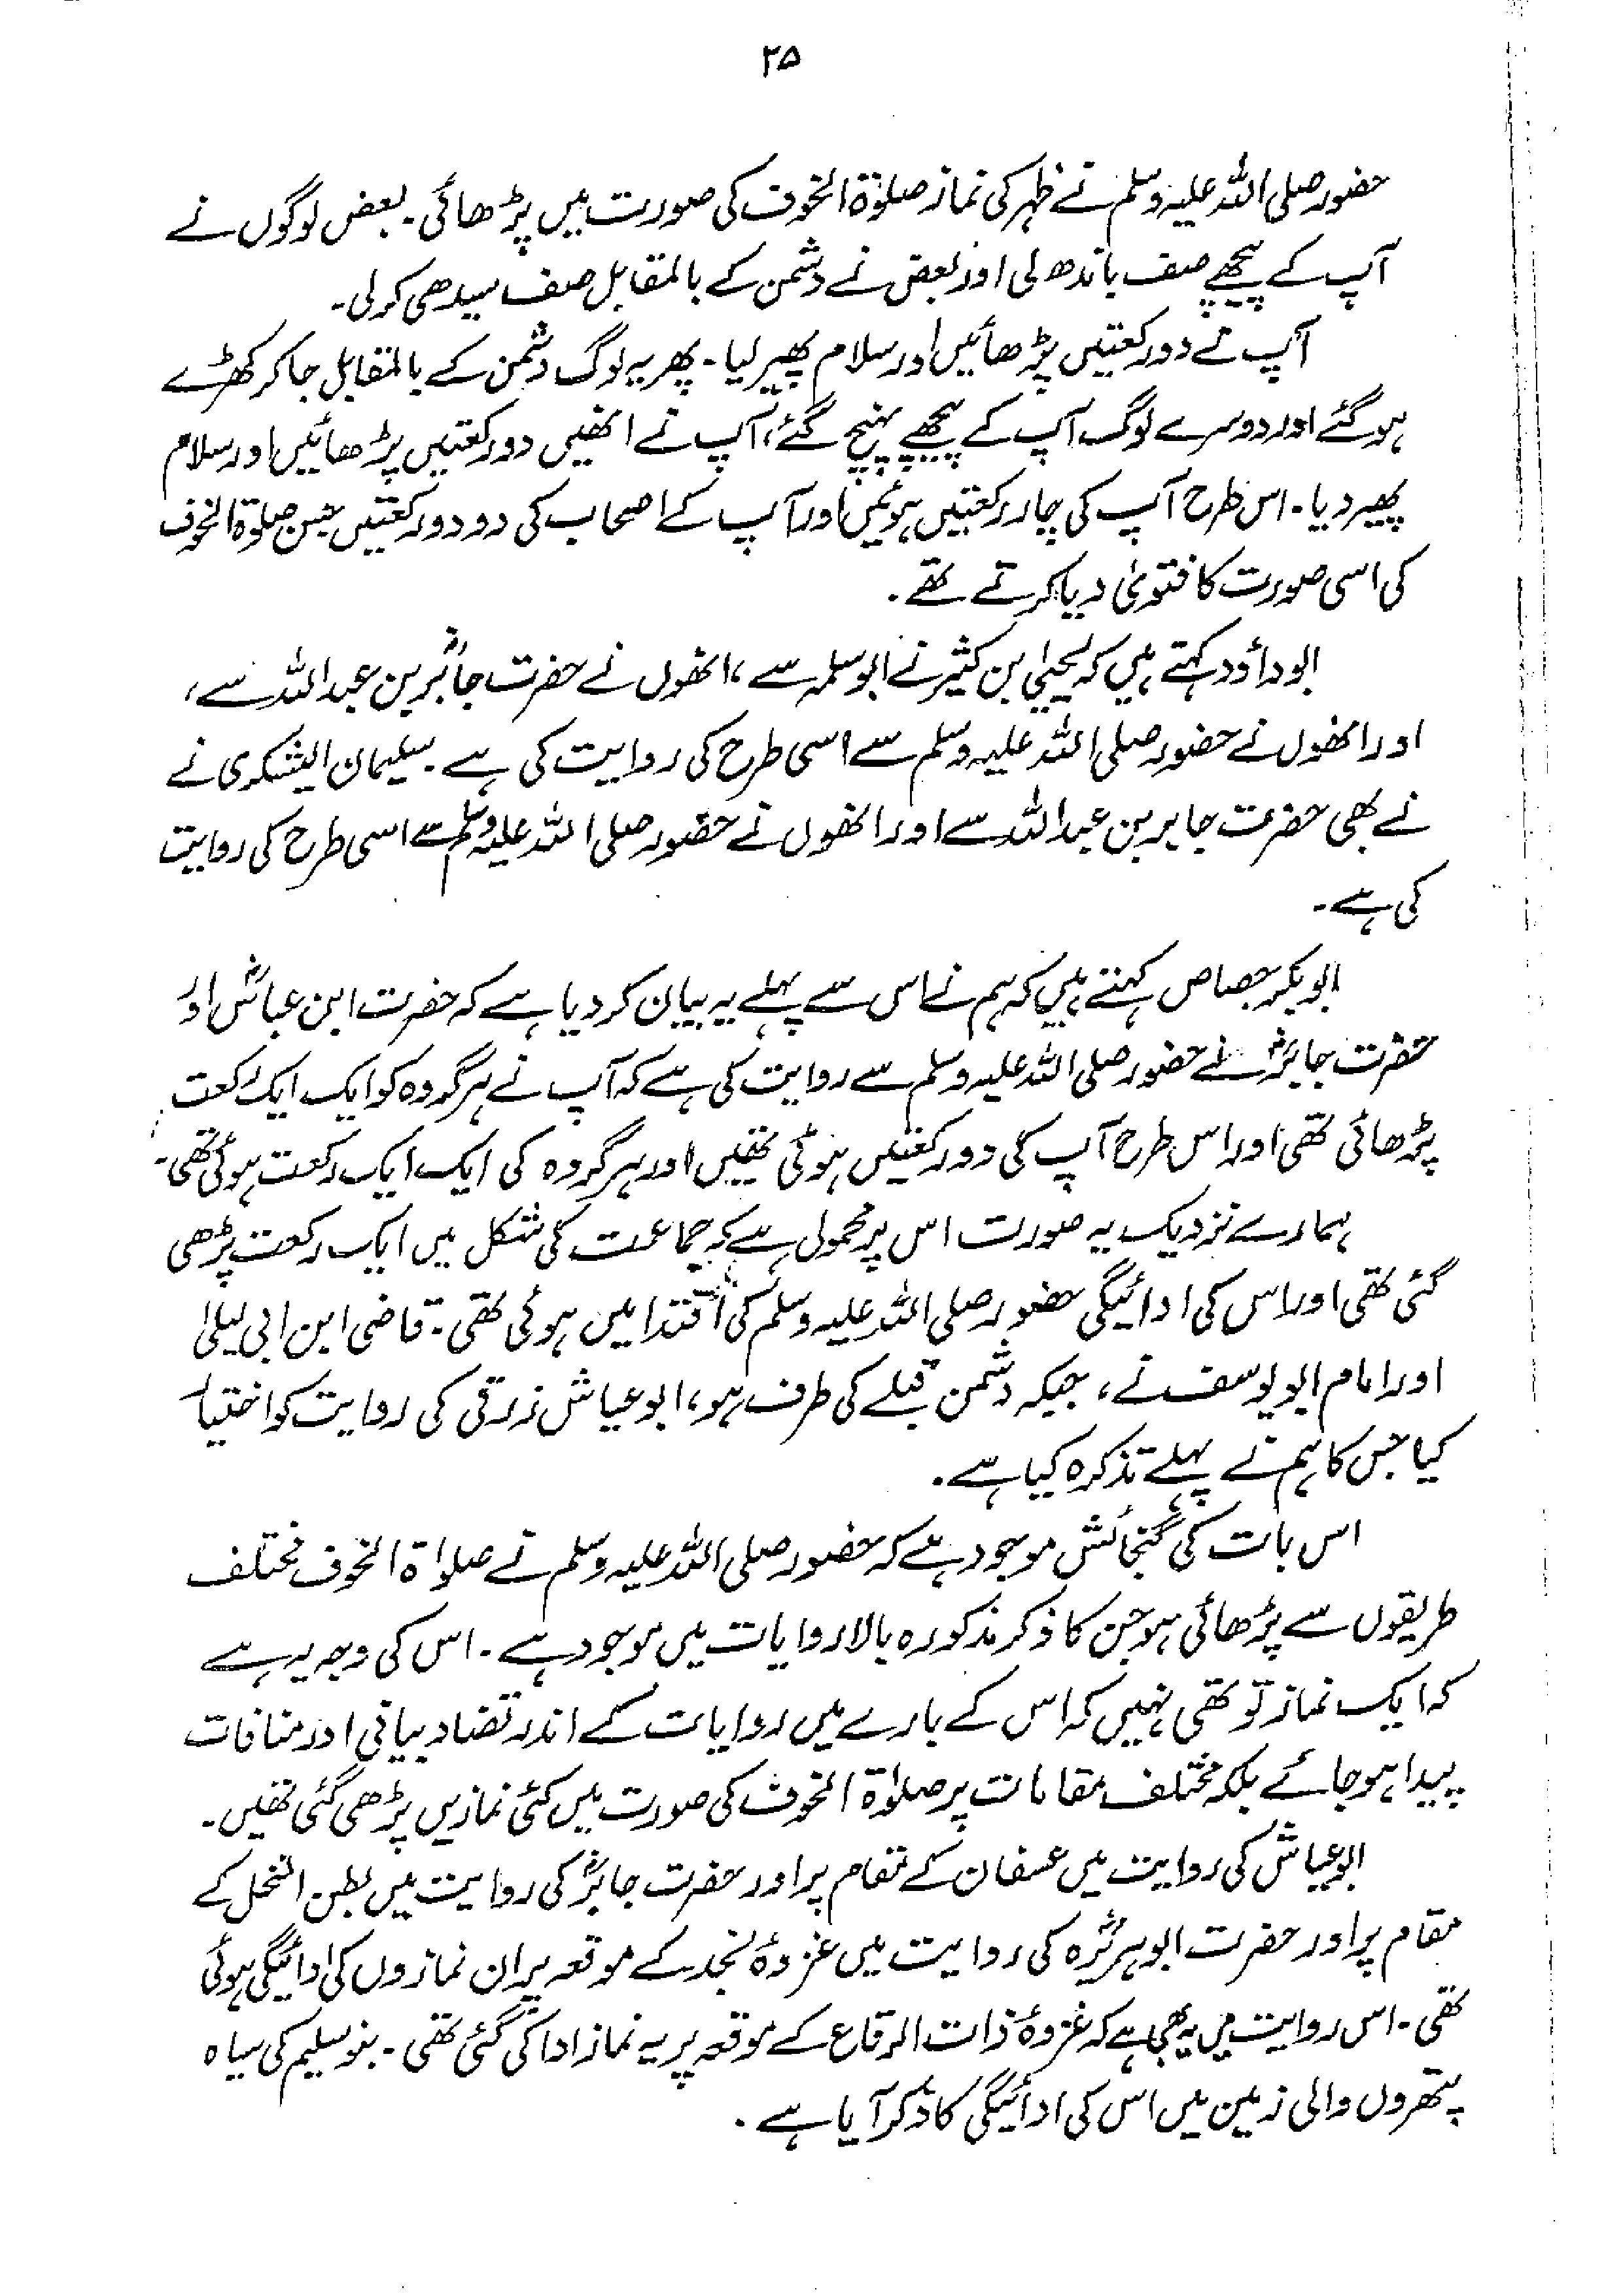 ۲۵
حضور صلی اللہ علیہ وسلم نے ظہر کی نماز صلوٰۃ الخوف کی صورت میں پڑھائی۔ بعض لوگوں نے
آپ کے پیچھے صف باندھ لی اور بعض نے دشمن کے بالمقابل صف سیدھی کر لی۔
آپ نے دو رکعتیں پڑھائیں اور سلام پھیر لیا۔ پھر یہ لوگ دشمن کے بالمقابل جا کر کھڑے
ہو گئے اور دوسرے لوگ آپ کے پیچھے پہنچ گئے، آپ نے انھیں دو رکعتیں پڑھائیں اور سلام
پھیر دیا۔ اس طرح آپ کی چار رکعتیں ہوئیں اور آپ کے اصحاب کی دو دو رکعتیں حسن صلوٰۃ الخوف
کی اسی صورت کا فتویٰ دیا کرتے تھے۔
ابو داؤد کہتے ہیں کہ یحییٰ بن کثیر نے ابو سلمہ سے، انھوں نے حضرت جابرؓ بن عبد اللہ سے،
اور انھوں نے حضور صلی اللہ علیہ وسلم سے اسی طرح کی روایت کی ہے۔ سلیمان الیشکری نے
نے بھی حضرت جابر بن عبد اللہ سے اور انھوں نے حضور صلی اللہ علیہ وسلم سے اسی طرح کی روایت
کی ہے۔
ابو بکر جصاص کہتے ہیں کہ ہم نے اس سے پہلے یہ بیان کر دیا ہے کہ حضرت ابن عباسؓ اور
حضرت جابرؓ نے حضور صلی اللہ علیہ وسلم سے روایت کی ہے کہ آپ نے ہر گروہ کو ایک ایک رکعت
پڑھائی تھی اور اس طرح آپ کی دو رکعتیں ہوئی تھیں اور ہر گروہ کی ایک ایک رکعت ہوئی تھی۔
ہمارے نزدیک یہ صورت اس پر محمول ہے کہ جماعت کی شکل میں ایک رکعت پڑھی
گئی تھی اور اس کی ادائیگی حضور صلی اللہ علیہ وسلم کی اقتدا میں ہوئی تھی۔ قاضی ابن ابی لیلیٰ
اور امام ابو یوسف نے، جبکہ دشمن قبلے کی طرف ہو، ابو عیاش زرقی کی روایت کو اختیار
کیا جس کا ہم نے پہلے تذکرہ کیا ہے۔
اس بات کی گنجائش موجود ہے کہ حضور صلی اللہ علیہ وسلم نے صلوٰۃ الخوف مختلف
طریقوں سے پڑھائی ہو جن کا ذکر مذکورہ بالا روایات میں موجود ہے۔ اس کی وجہ یہ ہے
کہ ایک نماز تو تھی نہیں کہ اس کے بارے میں روایات کے اندر تضاد بیانی اور منافات
پیدا ہو جائے بلکہ مختلف مقامات پر صلوٰۃ الخوف کی صورت میں کئی نمازیں پڑھی گئی تھیں۔
ابو عیاشؓ کی روایت میں عسفان کے مقام پر اور حضرت جابرؓ کی روایت میں بطن النخل کے
مقام پر اور حضرت ابو ہریرہؓ کی روایت میں غزوۂ نجد کے موقعہ پر ان نمازوں کی ادائیگی ہوئی
تھی۔ اس روایت میں یہ بھی ہے کہ غزوۂ ذات الرقاع کے موقعہ پر یہ نماز ادا کی گئی تھی۔ بنو سلیم کی سیاہ
پتھروں والی زمین میں اس کی ادائیگی کا ذکر آیا ہے۔